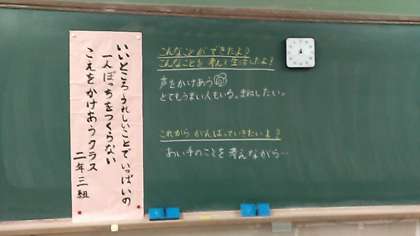 いいところうれしいことでいっぱいの
一人ぼっちをつくらない
こえをかけあうクラス
二年三組
こんなことができたよ？
こんなことを考えて生活したよ！
声をかけあう
とてもうまい人もいる。まねしたい。
これからがんばっていきたいよ？
あい手のことを考えながら…